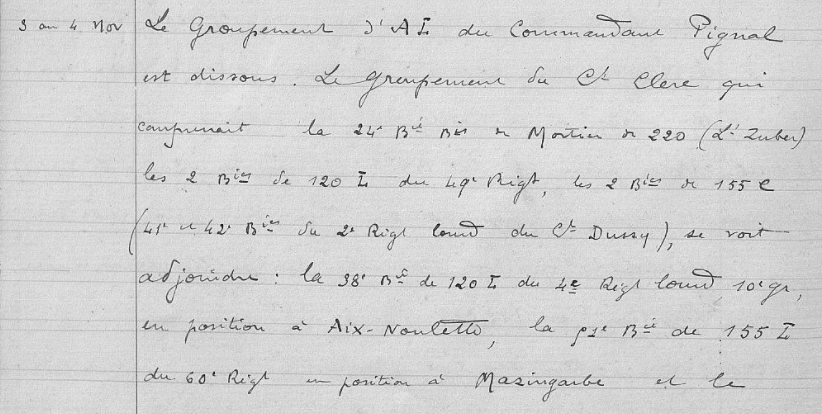 3 au 4 Nov Le Groupement d'AL du Commandant Pignal
est dissous. Le Groupement du Ct Clerc qui
comprenait la 24e Bie Bis de Mortier de 220 (Lt Zuber)
les 2 Bies de 120 L du 49e Rigt, les 2 Bies de 155 C
(41e et 42e Bies du 2e Rigt lourd du Ct Dussy), se voit
adjoindre : la 38e Bie de 120 L du 4e Rigt lourd 10e gr,
en position à Aix-Noulette, la 91e Bie de 155 L
du 60e Rigt en position à Mazingarbe et le